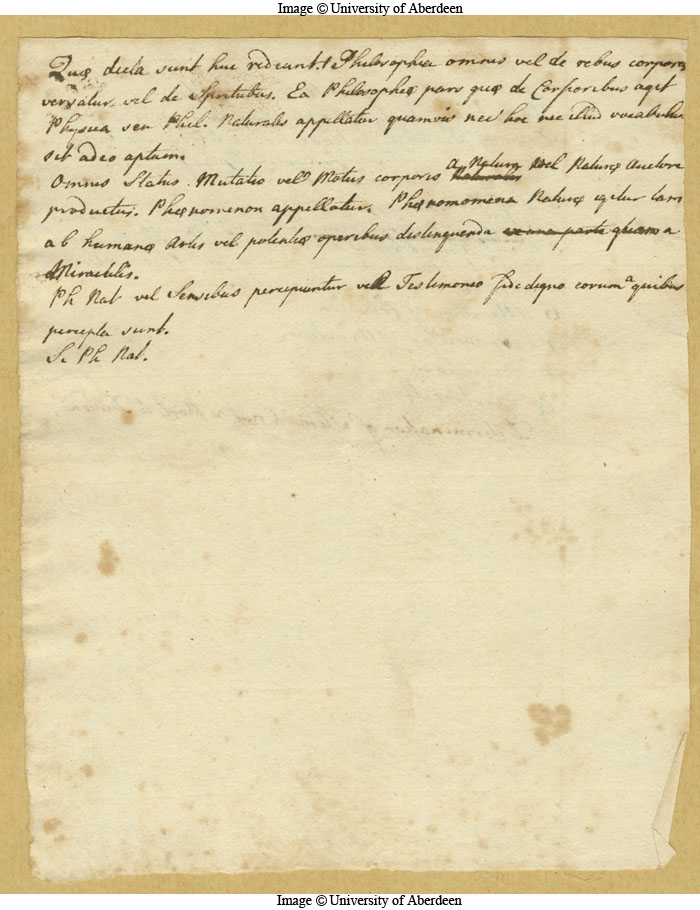 Image © University of Aberdeen
Quæ dicta sunt huc redeunt. Philosophia omnis vel de rebus corporeis
versatur vel de Spiritubus. Ea Philosophiæ pars quæ de Corporibus agit
Physica seu Phil. Naturalis appellatur quamvis nec hoc nec illud vocabulum
sit adeo aptum
Omnis Status Mutatio vel Motus corporis a Natura vel Naturæ Auctore
productus. Phænomenon appellatur. Phænomomena Naturæ igitur tam
ab humanæ Artis vel potentiæ operibus distinguenda ex una parte quam a
Miraculis.
Ph Nat vel Sensibus percipiuntur vel Testimonio fide digno eorum a quibus
percepta sunt.
Sc Ph Nat.
Image © University of Aberdeen